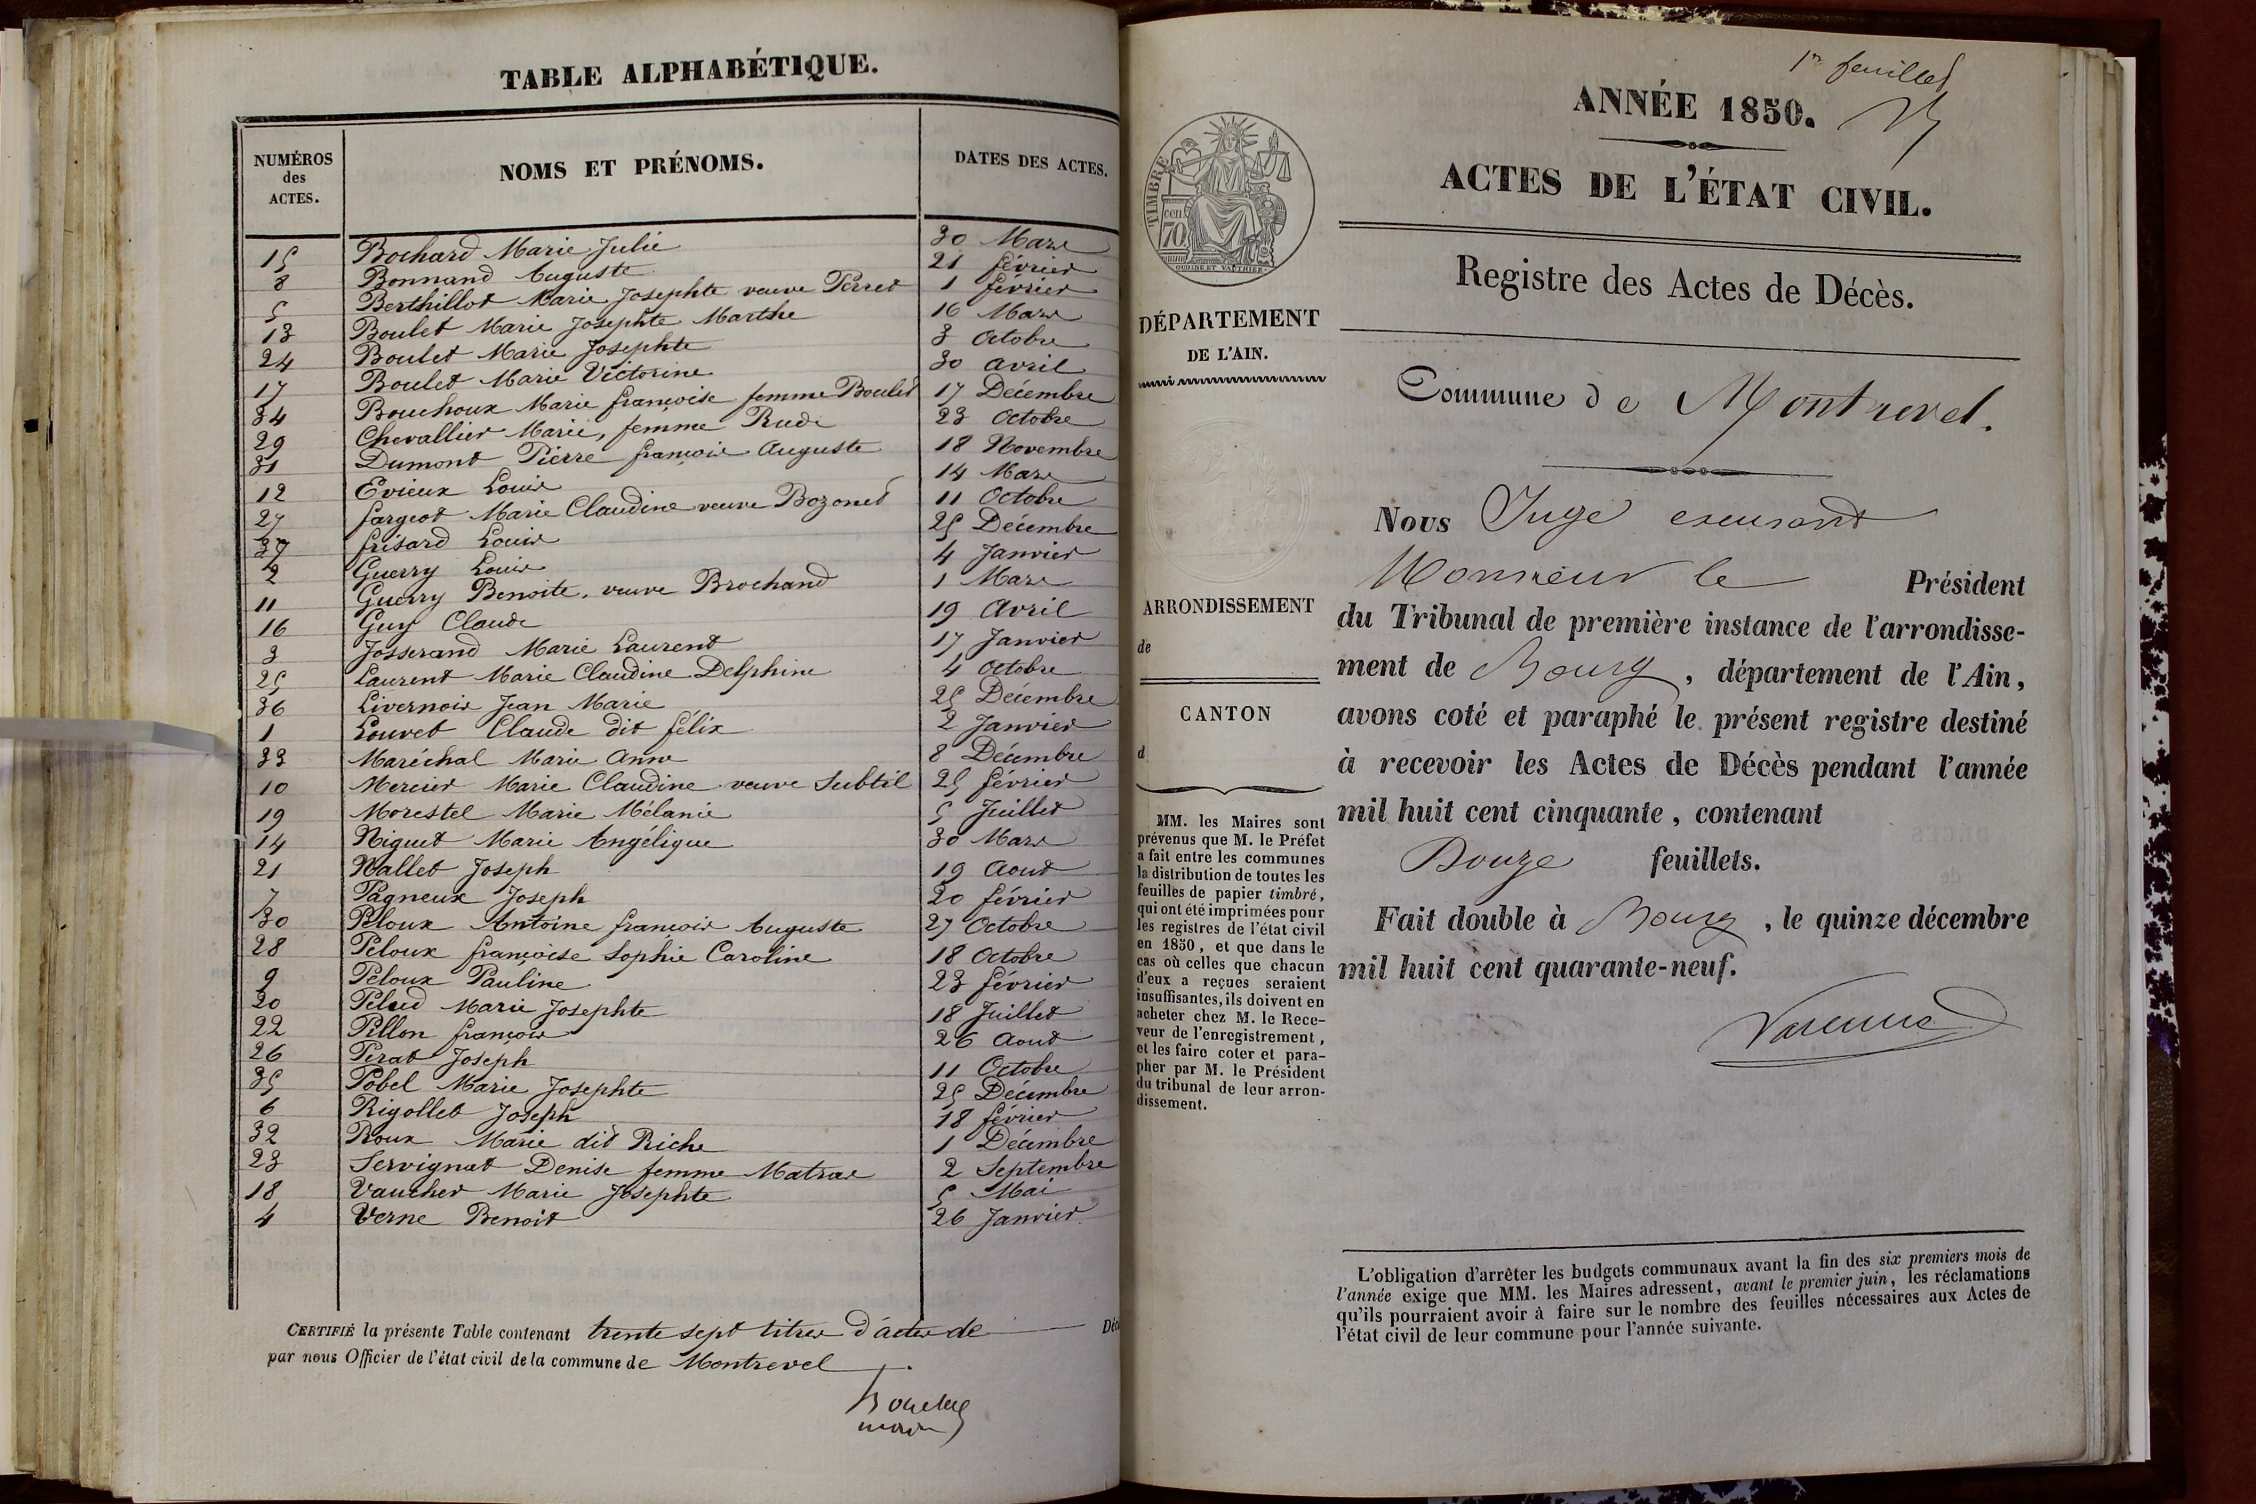 TABLE ALPHABÉTIQUE.
NUMÉROS des ACTES. NOMS ET PRÉNOMS. DATES DES ACTES.
15 Bochard Marie Julie 30 Mars
8 Bonnand Auguste 21 février
5 Berthillot Marie Josephte veuve Perret 1 février
13 Boulet Marie Josephte Marthe 16 Mars
24 Boulet Marie Josephte 3 Octobre
17 Boulet Marie Victorine 30 avril
34 Bouchoux Marie françoise femme Boulet 17 Décembre
29 Chevallier Marie, femme Rude 23 Octobre
31 Dumont Pierre françois Auguste 18 Novembre
12 Evieux Louis 14 Mars
27 fargeot Marie Claudine veuve Bozonet 11 Octobre
37 frisard Louis 25 Décembre
2 Guerry Louis 4 Janvier
11 Guerry Benoite, veuve Brochand 1 Mars
16 Guy Claude 19 Avril
3 Josserand Marie Laurent 17 Janvier
25 Laurent Marie Claudine Delphine 4 Octobre
36 Livernois Jean Marie 25 Decembre
1 Louvet Claude dit félix 2 Janvier
33 Maréchal Marie Anne 8 Décembre
10 Mercier Marie Claudine veuve Subtil 25 février
19 Morestel Marie Mélanie 5 Juillet
14 Niguet Marie Angélique 30 Mars
21 Nallet Joseph 19 Aout
7 Pagneux Joseph 20 février
30 Peloux Antoine françois Auguste 27 Octobre
28 Peloux françoise Sophie Caroline 18 Octobre
9 Peloux Pauline 23 février
20 Pelud Marie Josephte 18 Juillet
22 Pillon françois 26 Aout
26 Perat Joseph 11 Octobre
35 Pobel Marie Josephte 25 Décembre
6 Rigollet Joseph 18 février
32 Roux Marie dit Riche 1 Décembre
23 Servignat Denise femme Matras 2 Septembre
18 Vaucher Marie Josephte 5 Mai
4 Verne Benoit 26 Janvier
CERTIFIÉ la présente Table contenant trente sept titres d'actes de Déc
par nous Officier de l'état civil de la commune de Montrevel
maire
1er feuillet
ANNÉE 1850.
ACTES DE L'ÉTAT CIVIL.
Registre des Actes de Décès.
TIMBRE
70 cen
OUDINE ET VAUTHIER
DÉPARTEMENT
DE L'AIN.
ARRONDISSEMENT
de
CANTON
d
MM. les Maires sont
prévenus que M. le Préfet
a fait entre les communes
la distribution de toutes les
feuilles de papier timbré,
qui ont été imprimées pour
les registres de l'état civil
en 1850, et que dans le
cas où celles que chacun
d'eux a reçues seraient
insuffisantes, ils doivent en
acheter chez M. le Rece-
veur de l'enregistrement,
et les faire coter et para-
pher par M. le Président
du tribunal de leur arron-
dissement.
Commune de Montrevel.
Nous Juge excusant
Monsieur le Président
du Tribunal de première instance de l'arrondisse-
ment de Bourg, département de l'Ain,
avons coté et paraphé le présent registre destiné
à recevoir les Actes de Décès pendant l'année
mil huit cent cinquante, contenant
Douze feuillets.
Fait double à Bourg, le quinze décembre
mil huit cent quarante-neuf.
L'obligation d'arrêter les budgets communaux avant la fin des six premiers mois de
l'année exige que MM. les Maires adressent, avant le premier juin, les réclamations
qu'ils pourraient avoir à faire sur le nombre des feuilles nécessaires aux Actes de
l'état civil de leur commune pour l'année suivante.